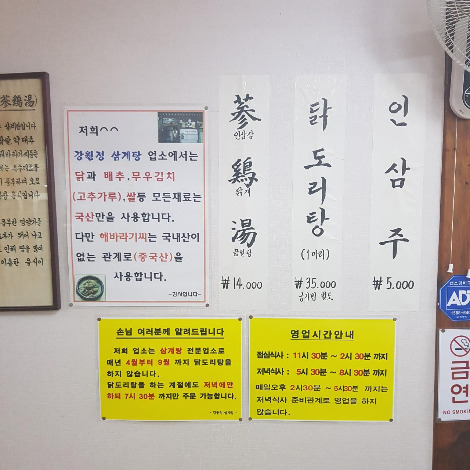 저희^^
강원정 삼계탕 업소에서는
닭과 배추,무우김치
(고추가루),쌀등 모든재료는
국산만을 사용합니다.
다만 해바라기씨는 국내산이
없는 관계로(중국산)을
사용합니다.
-감사합니다-
蔘鷄湯
₩14.000
닭도리탕
(1마리)
₩35.000
공기밥 별도
인삼주
₩5.000
손님 여러분께 알려드립니다
저희 업소는 삼계탕 전문업소로
매년 4월부터 9월 까지 닭도리탕을
하지 않습니다.
닭도리탕을 하는 계절에도 저녁에만
하되 7시 30분 까지만 주문 가능합니다.
영업시간안내
점심식사 : 11시 30분 ~ 2시 30분 까지
저녁식사 : 5시 30분 ~ 8시 30분 까지
매일오후 2시30분 ~ 5시30분 까지는
저녁식사 준비관계로 영업을 하지
않습니다.
금연
NO SMOKING